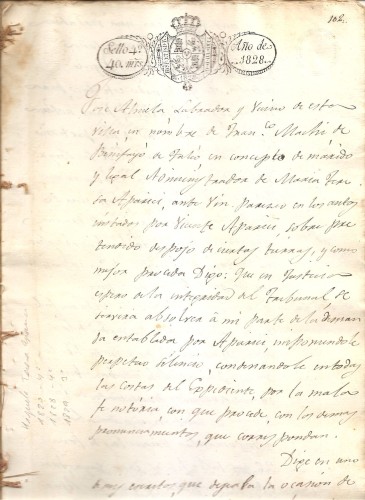 102.
Sello 4º
40. mrs.
Año de
1828.
Jose Abuela Labrador y Vecino de esta
Villa en nombre de Fran.co Machi de
Benifayó de Falcó en concepto de marido
y legal Administrador de Maria Tere
sa Aparici, ante Vm. parezco en los autos
instados por Vicente Aparici, sobre pre
tendido despojo de ciertas tierras, y como
mejor proceda Digo: Que en Justicia
espero de la integridad del Tribunal se
servira absolver á mi parte de la deman
da entablada por Aparici imponiendole
perpetuo silencio, condenandole en todas
las Costas del Expediente, por la mala
fe notoria, con que procede, con los demas
pronunciamientos, que correspondan.
Dixe en uno
de mis escritos que dejaba la ocasion de